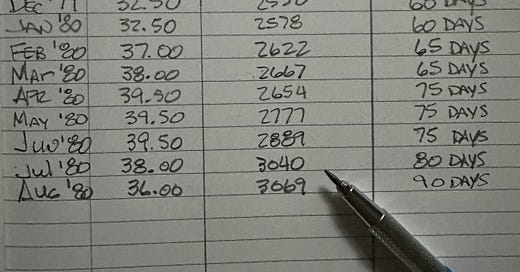 DEC '79 32.50 60 DAYS
JAN '80 32.50 2578 60 DAYS
FEB '80 37.00 2622 65 DAYS
MAR '80 38.00 2667 65 DAYS
APR '80 39.50 2654 75 DAYS
MAY '80 39.50 2777 75 DAYS
JUN '80 39.50 2889 75 DAYS
JUL '80 38.00 3040 80 DAYS
AUG '80 36.00 3069 90 DAYS